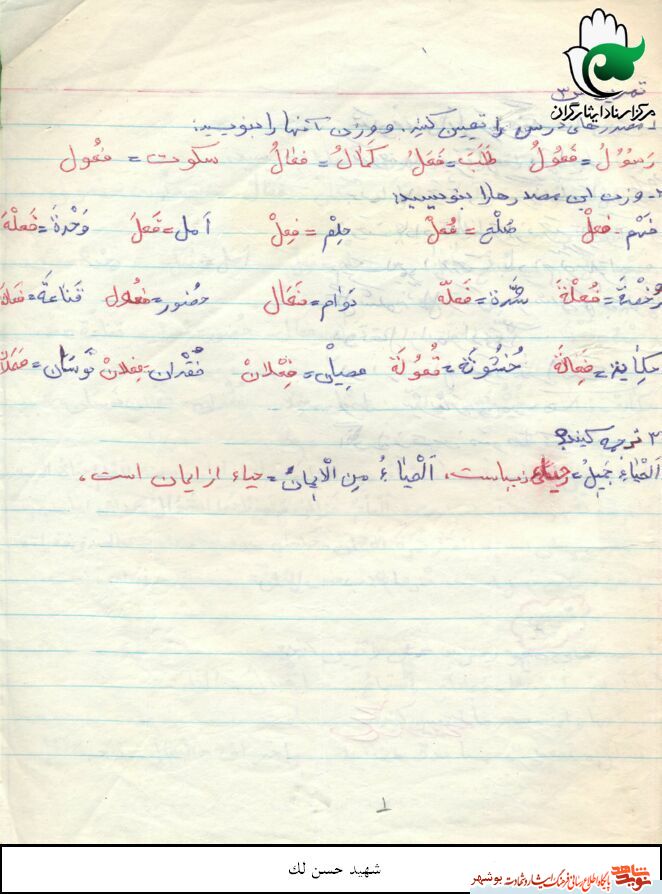 مرکز اسناد ایثارگران
تمرین ۳
۱ـ مصدرهای درس را تعیین کنید. و وزن آنها را بنویسید:
رَسُوُلُ = فَعُولُ طَلَبَ = فَعَلُ کَمٰالُ = فعٰالُ سکوت = فعول
۲ـ وزن این مصدرها را بنویسید:
فَهْم = فَعلْ صُلْح = فُعلْ حِلِم = فِعِلْ اَمل = فَعَلَ وَحْدَة = فَعلْة
رُخْصَة = فُعْلَة شَّرَة = فَعلَّه دَوٰام = فَعٰال حضور = فعُول قَناعَة =
حِکٰایة = فِعٰالَة خُشُونَة = فُعُولَة عِصیٰان = فِعْلٰان فُقْدان = فِعلان نَوسَان =
۳ ترجمه کنید؟
اَلْحَیٰاءِ جَمِیلُ = حیاء زیباست، اَلْحَیٰاءُ مِن الْاِیمٰان = حیاء از ایمان است،
۱
شهید حسن لك
نوید شاهد پایگاه اطلاع رسانی فرهنگ ایثار و شهادت بوشهر